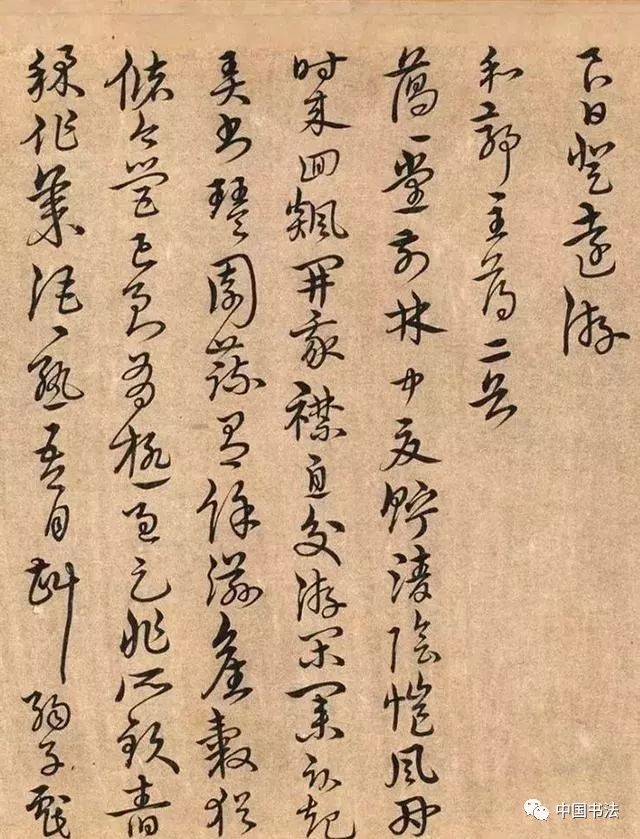 良日登遠游
和郭主簿二首
藹〻堂前林中夏貯清陰愷風因
時來回飆開我襟息交游閑業臥起
弄書琴園蔬有餘滋舊穀猶
儲今營己良有極過足非所欽舂
秫作美酒〻熟吾自斟弱子戲
中国书法